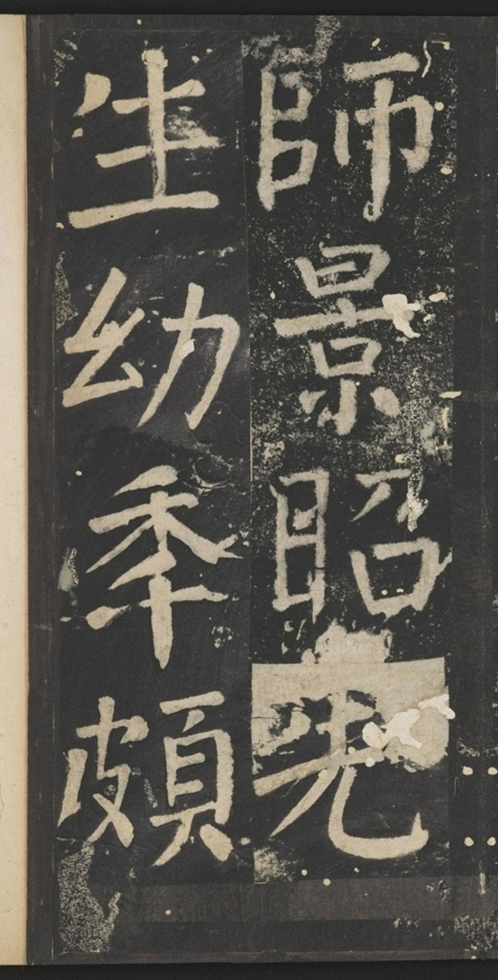 師景昭先
生幼秊頗